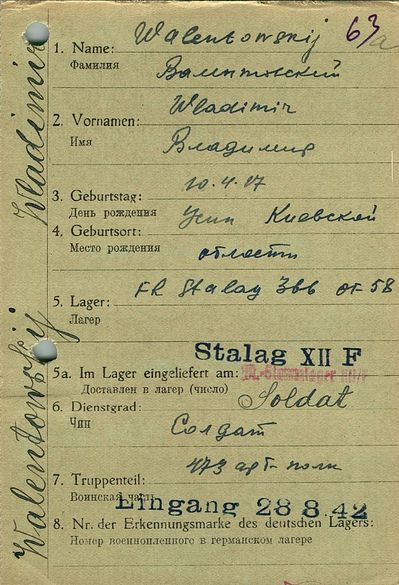 63a
1. Name: Walentowskij
Фамилия Валентовский
Wladimir
2. Vornamen:
Имя Владимир
3. Geburtstag: 10.4.17
День рождения
4. Geburtsort: Киевской
Место рождения области
FR Stalag 366 OF 58
5. Lager:
Лагерь
Stalag XII F
5a. Im Lager eingeliefert am:
Доставлен в лагерь (число)
Soldat
6. Dienstgrad:
Чин Солдат
473 арт-полк
7. Truppenteil:
Воинская часть
Eingang 28.8.42
8. Nr. der Erkennungsmarke des deutschen Lagers:
Номер военнопленного в германском лагере
Walentowskij Wladimir